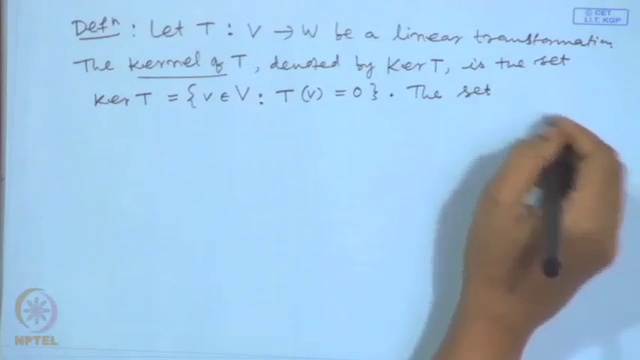 © CET
I.I.T. KGP
Defⁿ : Let T : V → W be a linear transformation
The kernel of T, denoted by Ker T, is the set
Ker T = { v ∈ V : T(v) = 0 } . The set
NPTEL